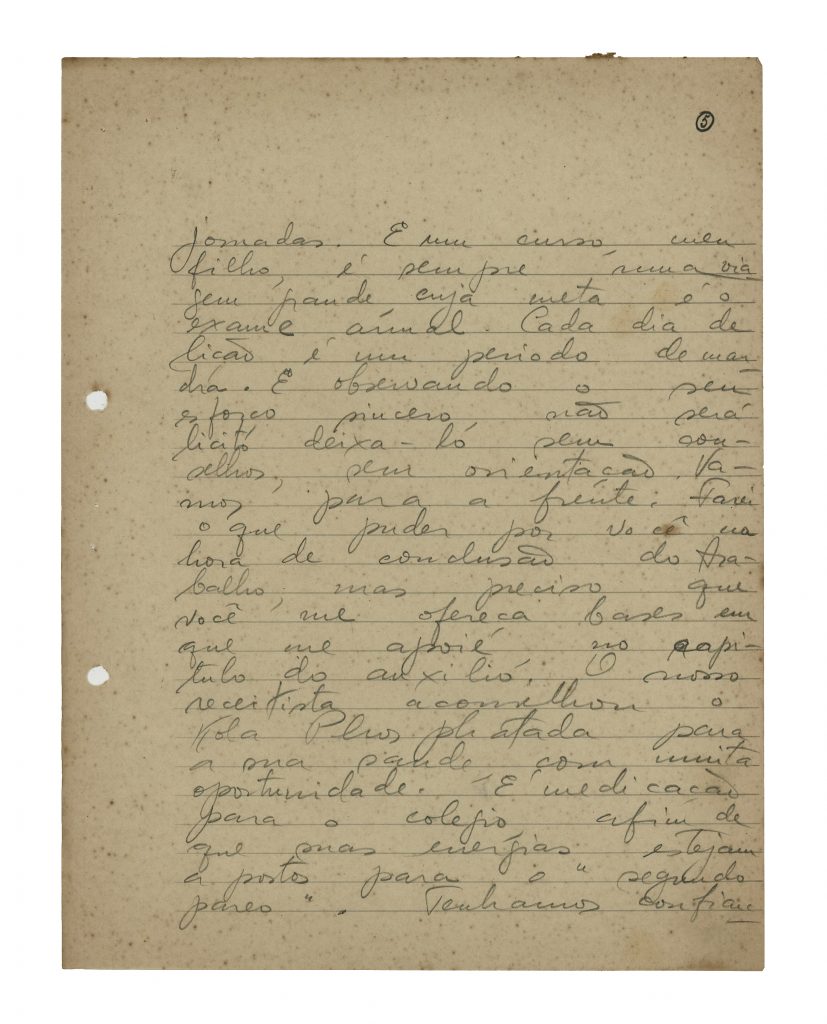 5
jornadas. E um curso meu
filho, é sempre uma via
gem grande cuja meta é o
exame anual. Cada dia de
lição é um periodo de mar
cha. E observando o seu
esforço sincero não será
licito deixa-ló sem con-
selhos, sem orientação. Va-
mos para a frente. Farei
o que puder por você na
hora de conclusão do tra-
balho, mas preciso que
você me ofereça bases em
que me apoié no capi-
tulo do auxilió. O nosso
receitista aconselhou o
Kola Phosphatada para
a sua saude com muita
oportunidade. É medicação
para o colegio, afim de
que suas energias estejam
a postos para o "segundo
pareo". Tenhamos confian